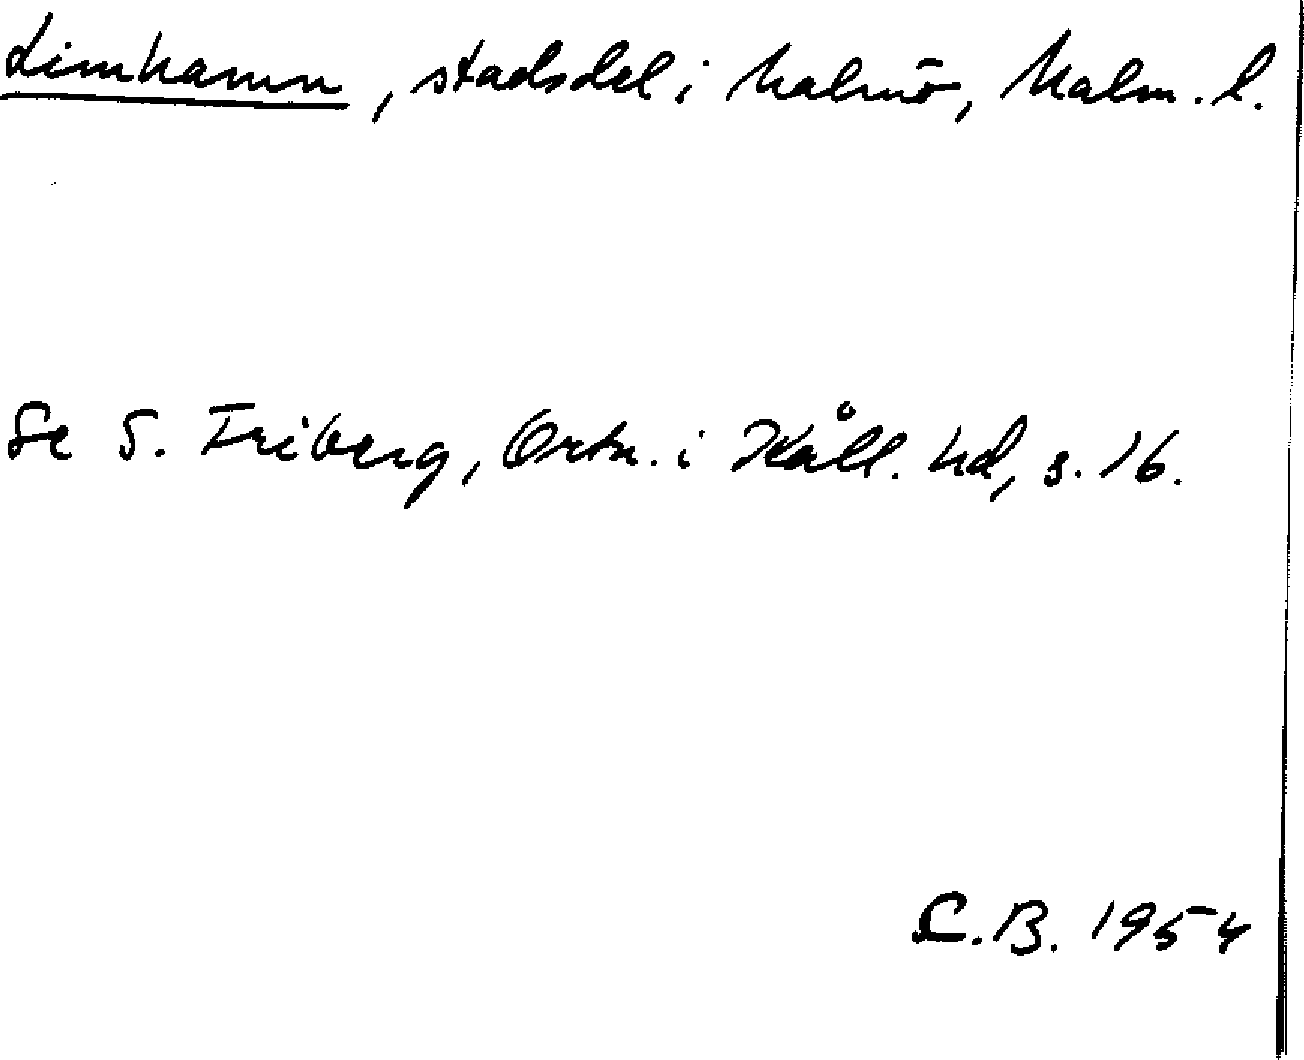 Limhamn, stadsdel i Malmö, Malm. l.
Se S. Friberg, Ortn. i Kåll. hd, s. 16.
C.B. 1954